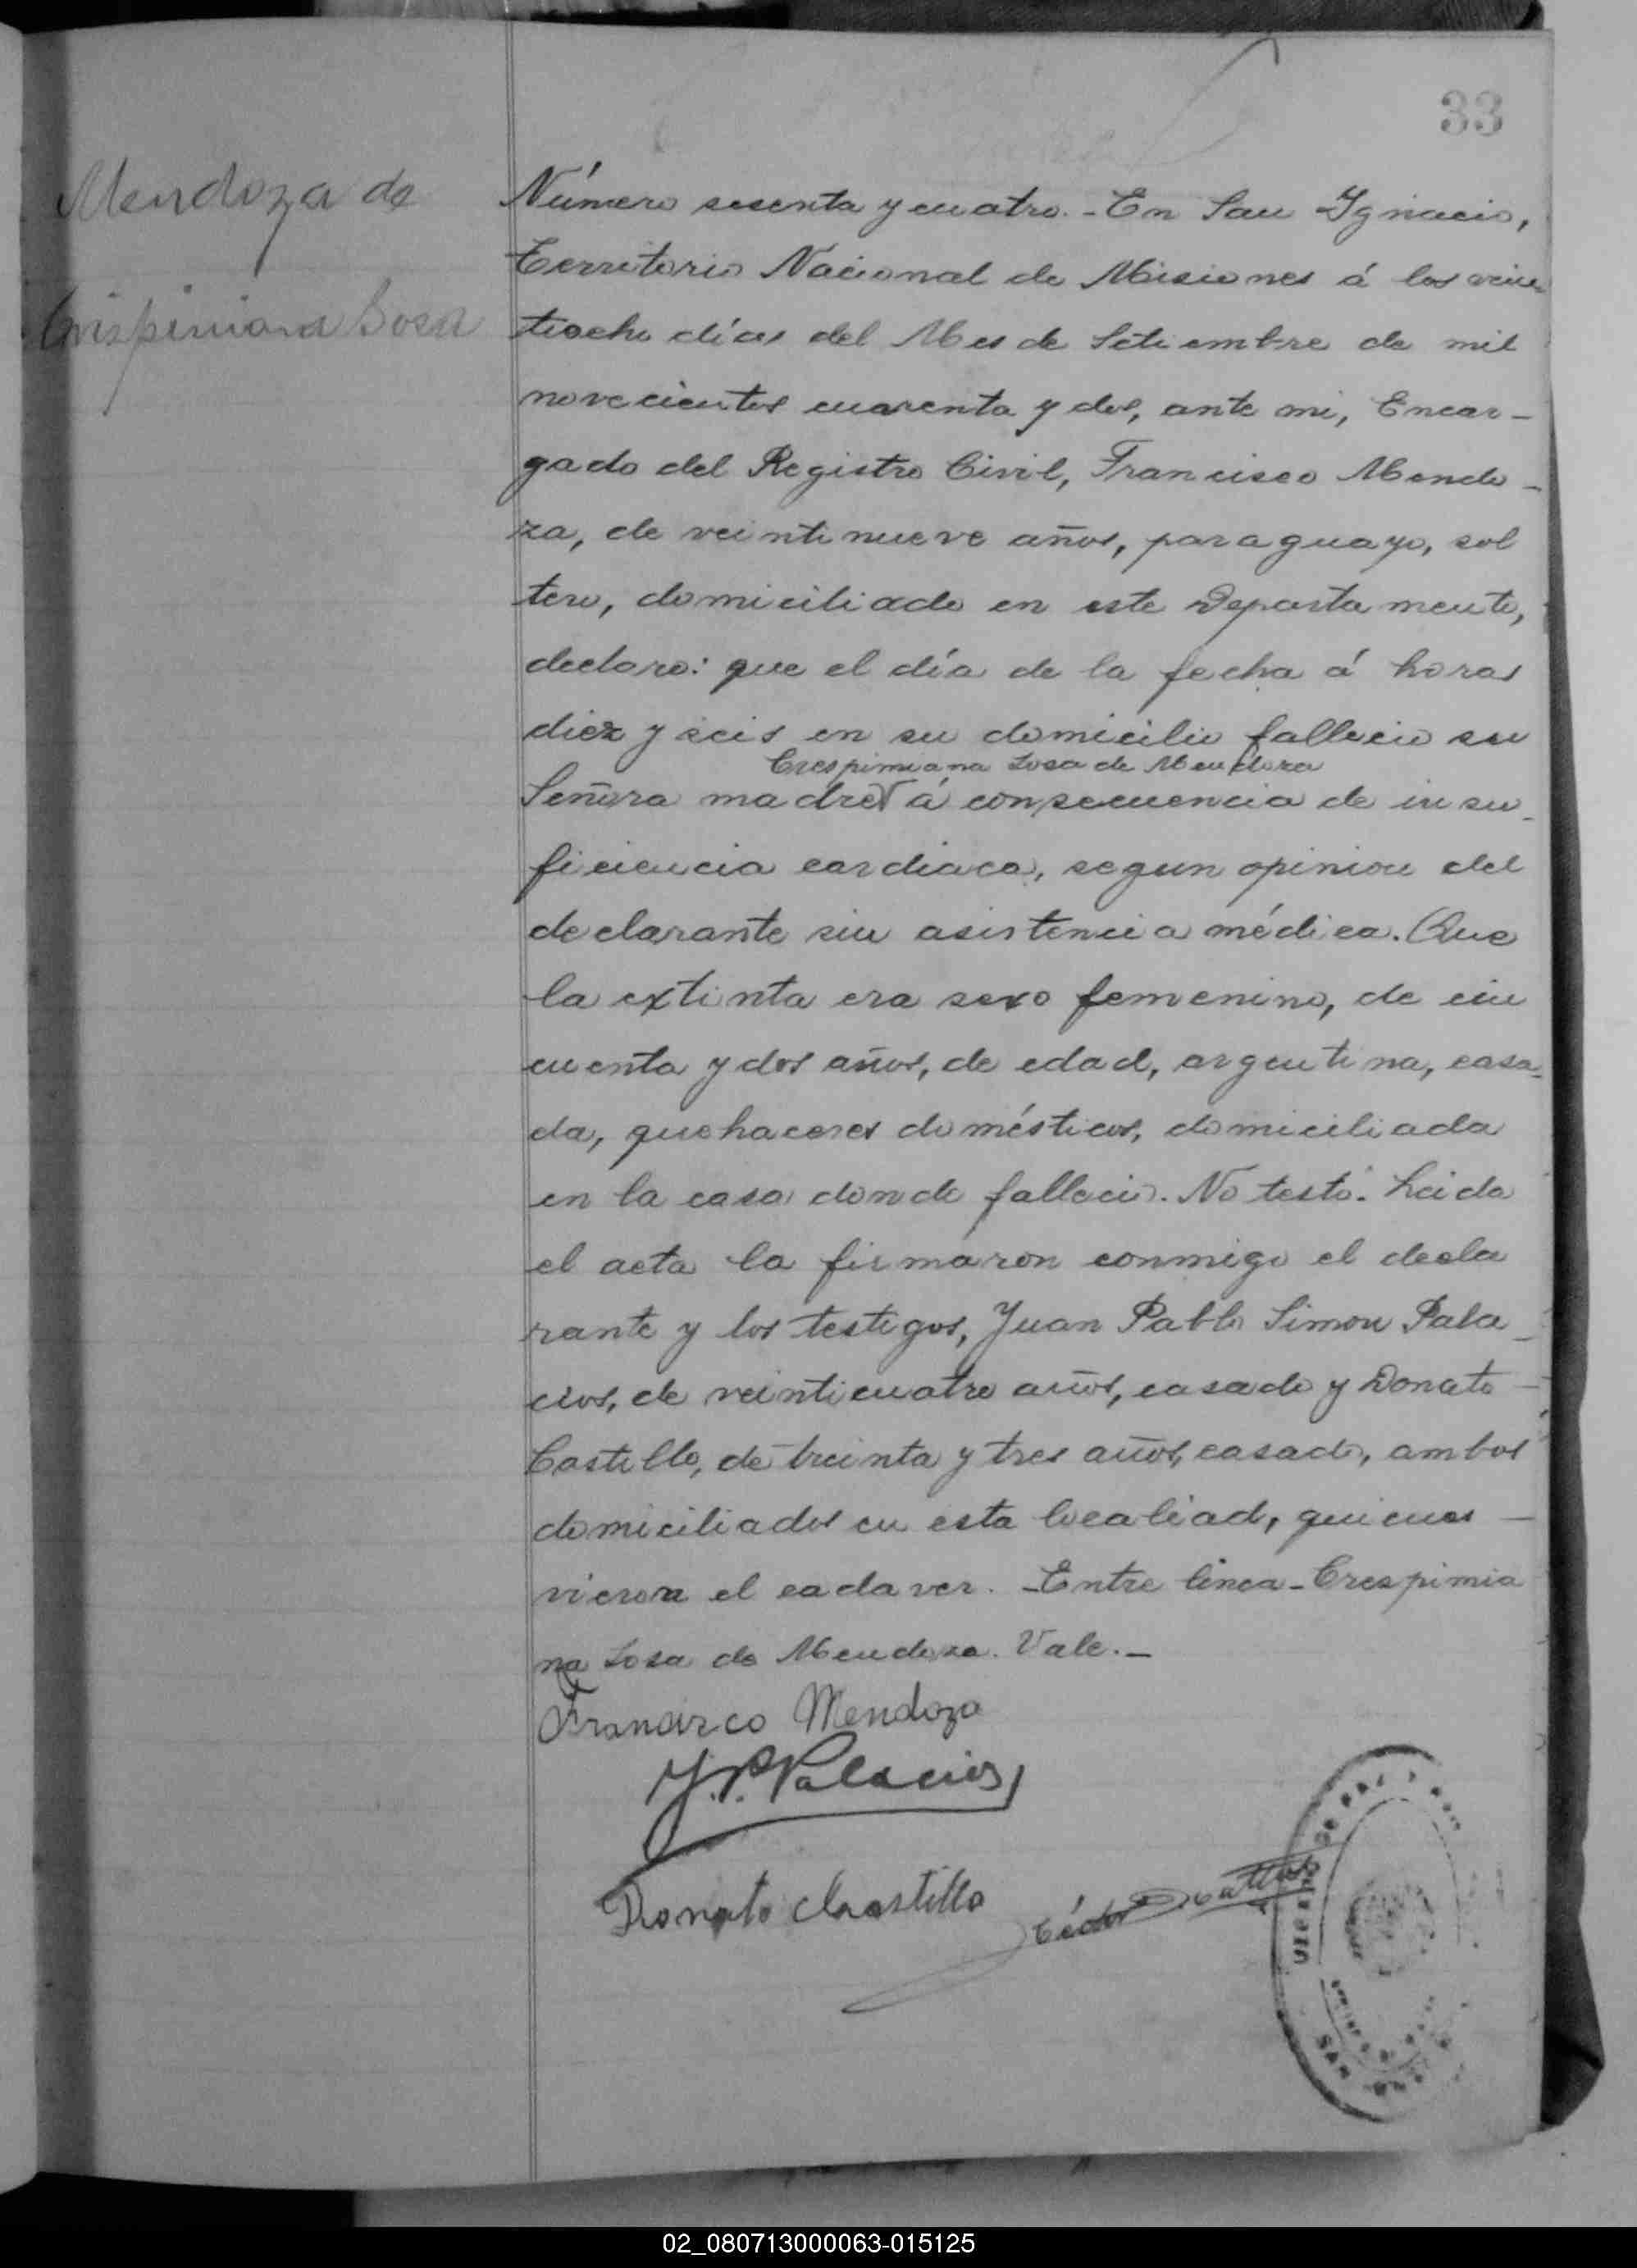 33
Mendoza de
Crispiniana Sosa
Número sesenta y cuatro. - En San Ygnacio,
Territorio Nacional de Misiones á los vein
tiocho días del Mes de Setiembre de mil
novecientos cuarenta y dos, ante mi, Encar-
gado del Registro Civil, Francisco Mendo-
za, de veintinueve años, paraguayo, sol
tero, domiciliado en este Departamento,
declaro: que el día de la fecha á horas
diez y seis en su domicilio fallecio su
Crespimiana Sosa de Mendoza
Señora madre á consecuencia de insu-
ficiencia cardiaca, segun opinion del
declarante sin asistencia médica. Que
la extinta era sexo femenino, de cin
cuenta y dos años, de edad, argentina, casa-
da, quehaceres domésticos, domiciliada
en la casa donde fallecio. No testó. Leida
el acta la firmaron conmigo el decla
rante y los testigos, Juan Pablo Simon Pala-
cios, de veinticuatro años, casado y Donato -
Castillo, de treinta y tres años, casado, ambos
domiciliados en esta localiad, quienes -
vieron el cadaver. - Entre linea - Crespimia
na Sosa de Mendoza. Vale. -
Francisco Mendoza
J. P. Palacios
Donato Castillo
SAN
02_080713000063-015125